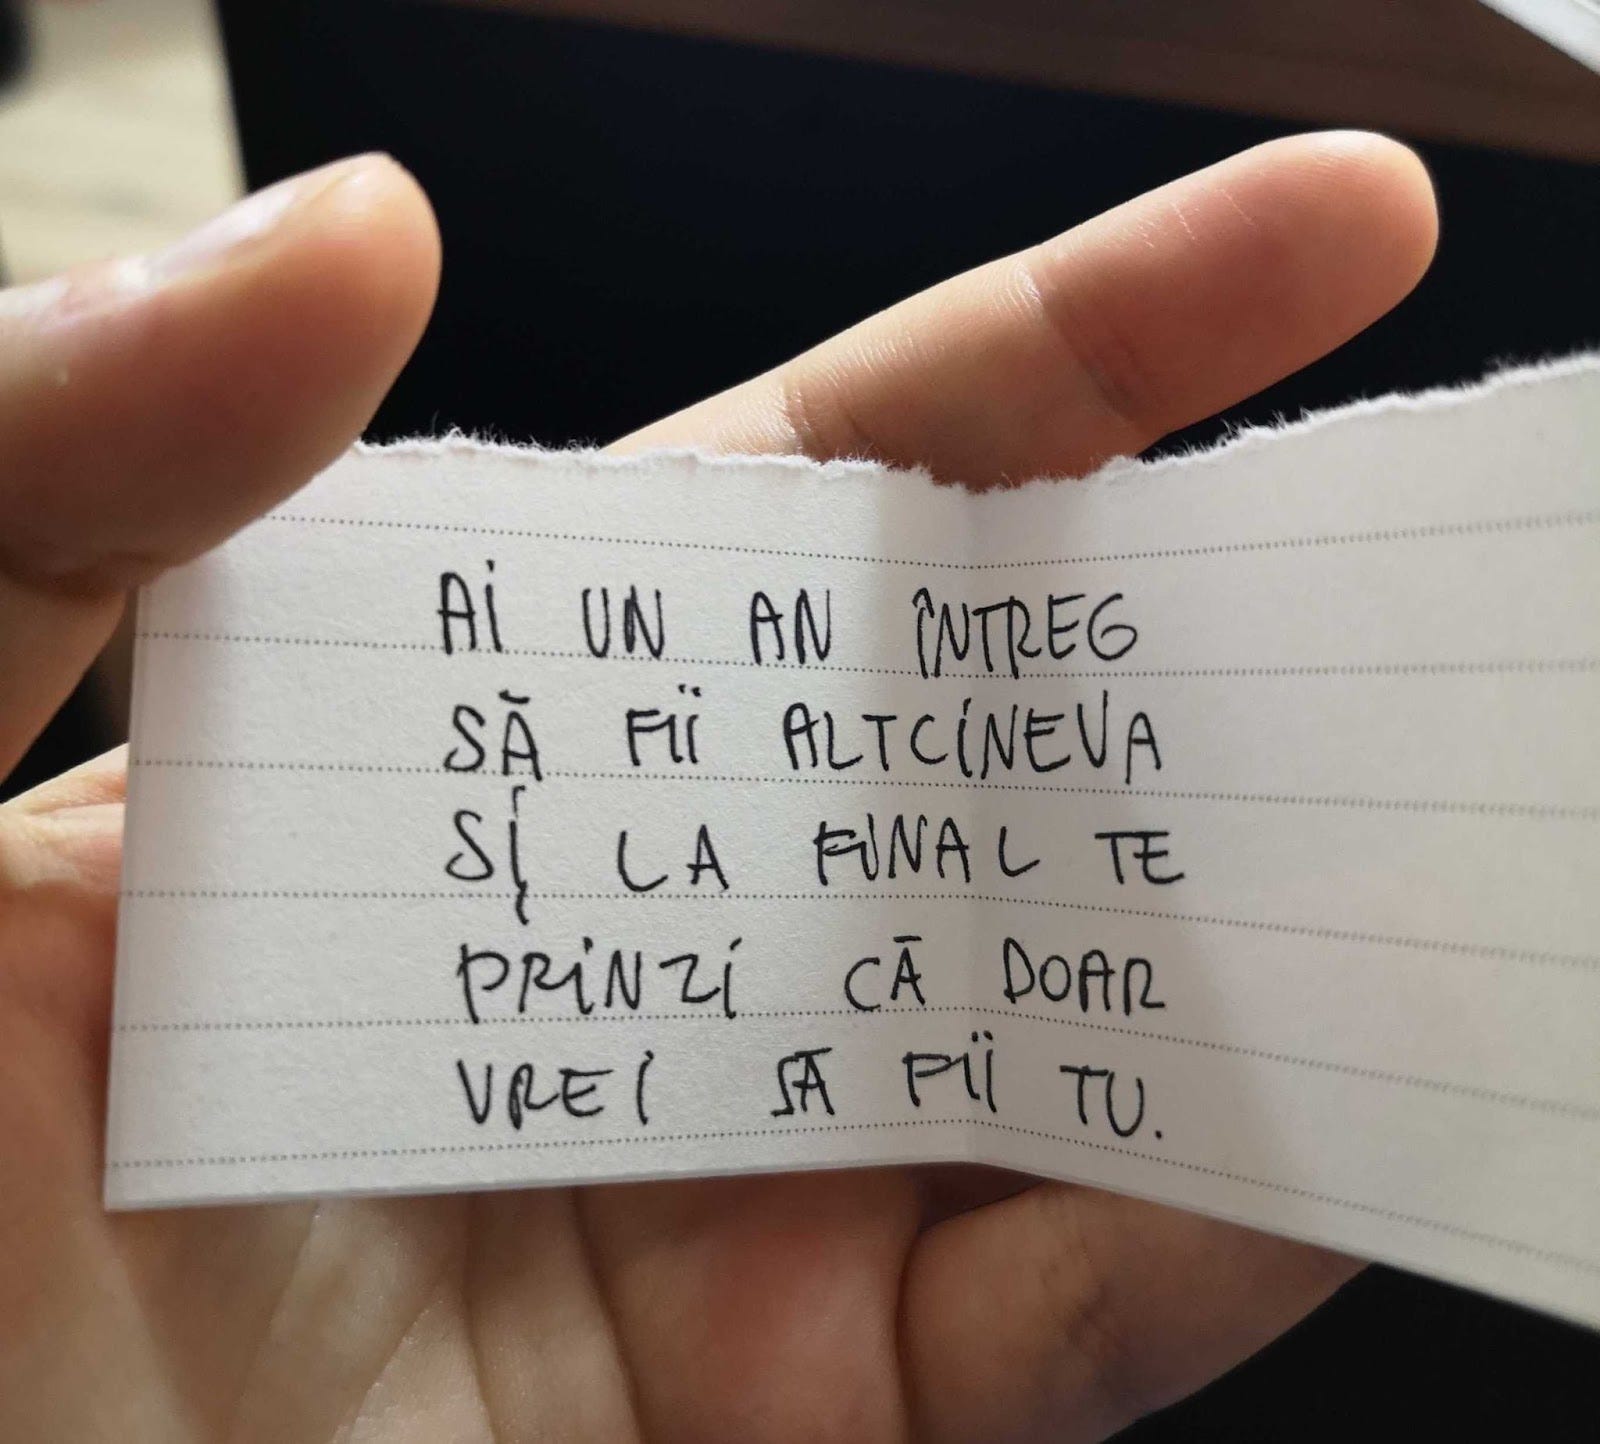 Ai UN AN ÎNTREG
SĂ Fii ALTCiNEVA
Și LA FiNAL TE
PRiNZi CĂ DOAR
VREi SĂ Fii TU.